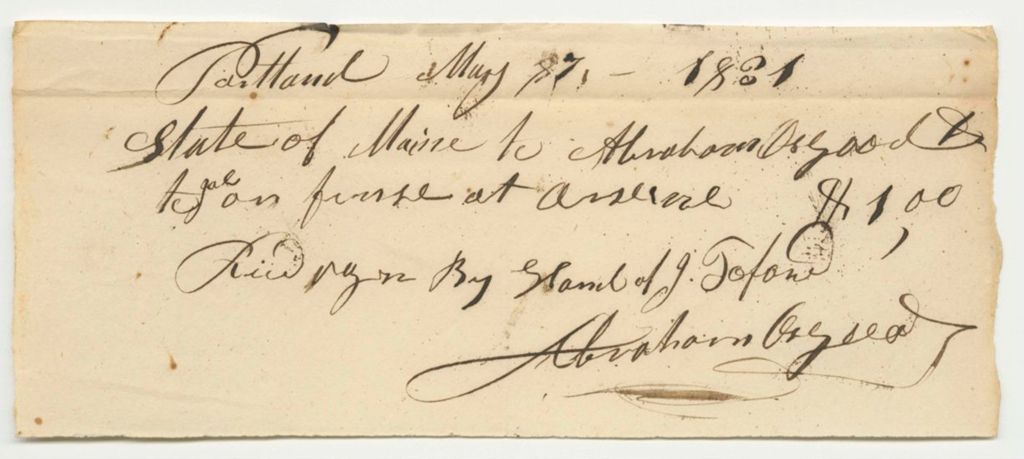 Portland May 27, - 1831
State of Maine to Abraham Osgood Dr
to on fense at arsenel $1,00
Recd By Hand of J.
Abraham Osgood